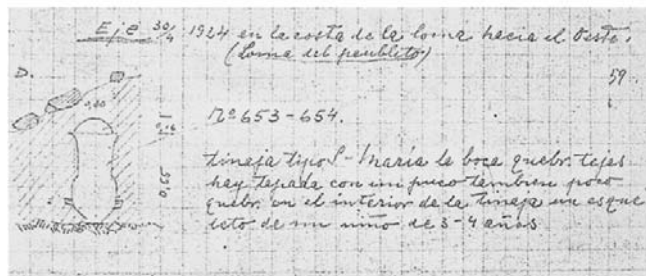 Eje 30/4 1924 en la costa de la loma hacia el Oeste.
(Loma del pueblito)
D.
59
0,30
Nº 653-654.
tinaja tipo S-Maria la boca quebr.
hay tapada con un puco tambien poco
quebr. en el interior de la tinaja un esque
leto de un niño de 3-4 años
0,55